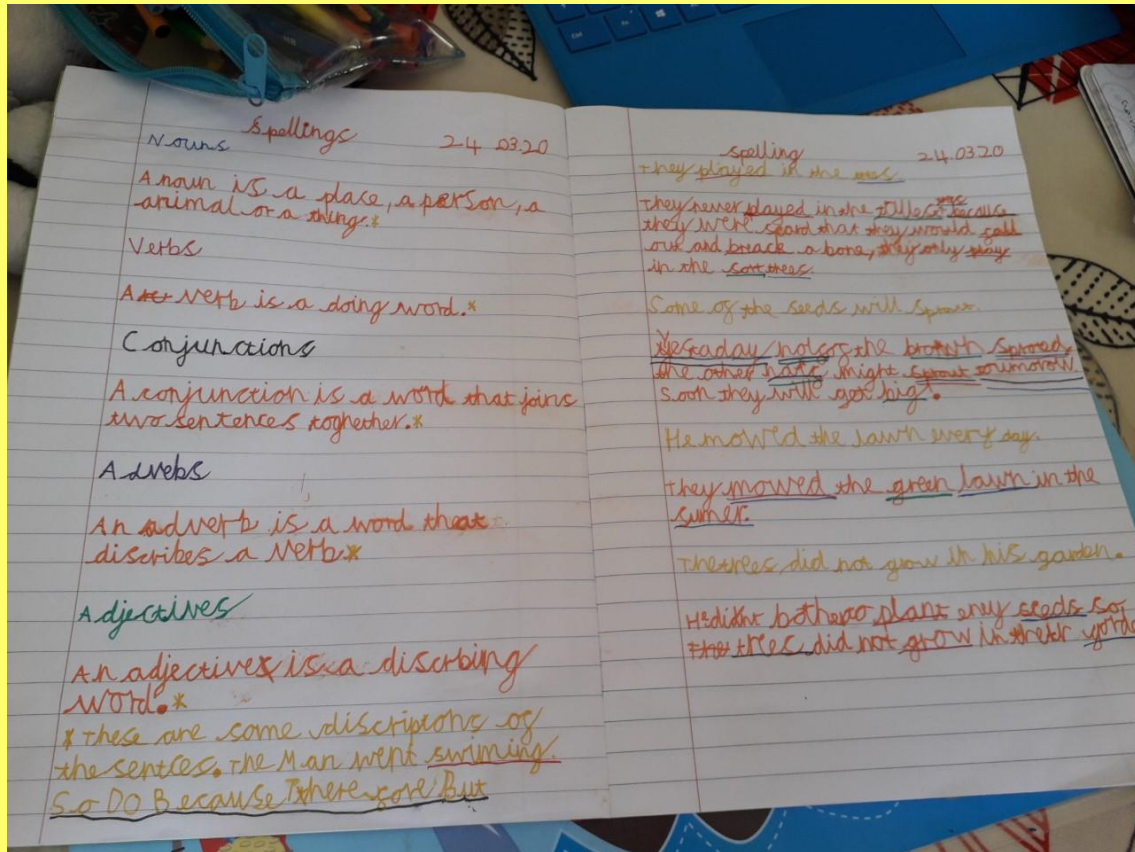 Spellings 24 03.20
Nouns
A noun is a place, a person, a
animal or a thing.*
Verbs
A verb is a doing word.*
Conjunctions
A conjunction is a word that joins
two sentences toghether.*
Advebs
An adverb is a word that
discribes a verb*
Adjectives
An adjectives is a discrbing
word.*
* These are some discriptons of
the sentces. The Man went swiming.
So DO Because Therefore But
spelling 24.03.20
They played in the trees.
they never played in the trees because
they were scard that they would fall
out and breack a bone, they only play
in the sort trees.
Some of the seeds will sprout.
Yestaday the
the other might sprout tumorow
soon they will get big.
He mow'd the lawn every day.
They mowed the green lawn in the
sumer.
The trees did not grow in his garden.
He didnt bother to plant eney seeds so
the trees did not grow in their